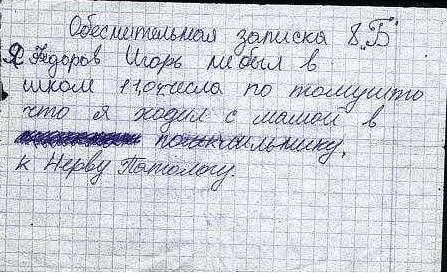 Обеснительная записка 8 „Б"
Я Фёдоров Игорь не был в
школе 11,0 числа по томушто
что я ходил с мамой в
к Нерву Патологу.